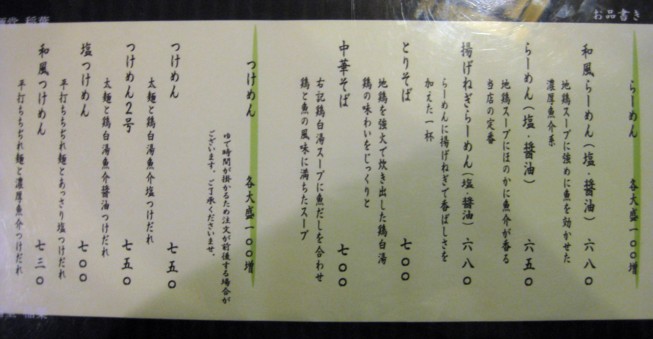 お品書き
らーめん 各大盛一〇〇増
和風らーめん（塩・醤油） 六八〇
地鶏スープに強めに魚を効かせた
濃厚魚介系
らーめん（塩・醤油） 六五〇
地鶏スープにほのかに魚介が香る
当店の定番
揚げねぎらーめん（塩・醤油） 六八〇
らーめんに揚げねぎで香ばしさを
加えた一杯
とりそば 七〇〇
地鶏を強火で炊き出した鶏白湯
鶏の味わいをじっくりと
中華そば 七〇〇
右記鶏白湯スープに魚だしを合わせ
鶏と魚の風味に満ちたスープ
つけめん 各大盛一〇〇増
ゆで時間が掛かるため注文が前後する場合が
ございます。ご了承くださいませ。
つけめん 七五〇
太麺と鶏白湯魚介塩つけだれ
つけめん2号 七五〇
太麺と鶏白湯魚介醤油つけだれ
塩つけめん 七〇〇
平打ちちぢれ麺とあっさり塩つけだれ
和風つけめん 七三〇
平打ちちぢれ麺と濃厚魚介つけだれ